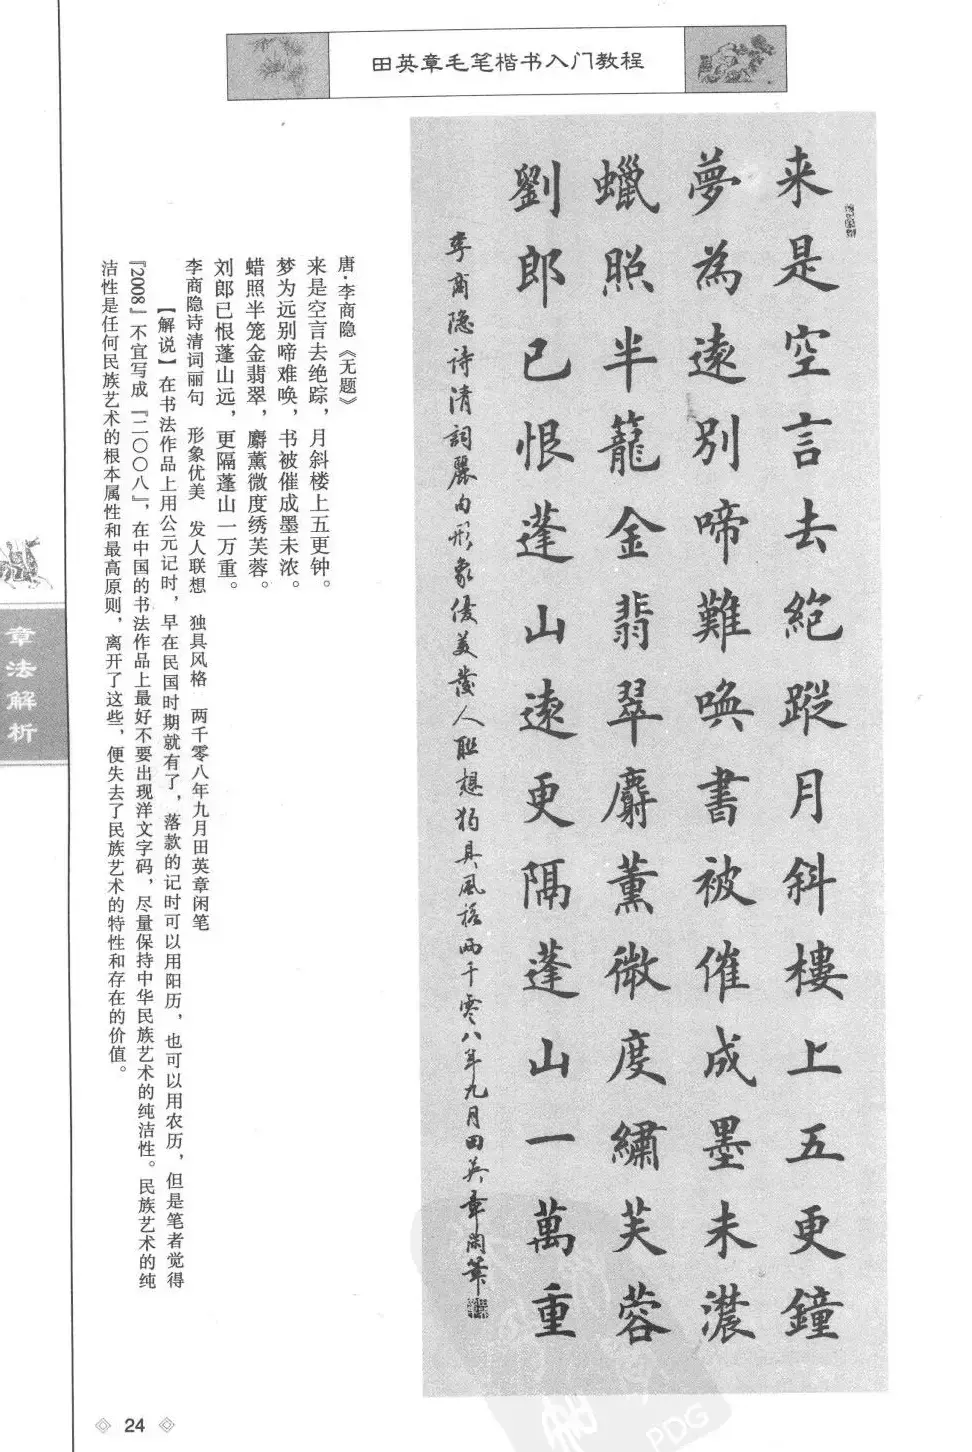 田英章毛笔楷书入门教程
来是空言去絕蹤月斜樓上五更鐘
夢為遠別啼難喚書被催成墨未濃
蠟照半籠金翡翠麝薰微度繡芙蓉
劉郎已恨蓬山遠更隔蓬山一萬重
李商隐诗清詞麗句形象优美發人联想独具風格两千零八年九月田英章闲筆
唐·李商隐《无题》
来是空言去绝踪，月斜楼上五更钟。
梦为远别啼难唤，书被催成墨未浓。
蜡照半笼金翡翠，麝薰微度绣芙蓉。
刘郎已恨蓬山远，更隔蓬山一万重。
李商隐诗清词丽句　形象优美　发人联想　独具风格　两千零八年九月田英章闲笔
【解说】在书法作品上用公元记时，早在民国时期就有了，落款的记时可以用阳历，也可以用农历，但是笔者觉得
『2008』不宜写成『二〇〇八』，在中国的书法作品上最好不要出现洋文字码，尽量保持中华民族艺术的纯洁性。民族艺术的纯
洁性是任何民族艺术的根本属性和最高原则，离开了这些，便失去了民族艺术的特性和存在的价值。
章法解析
24
PDG